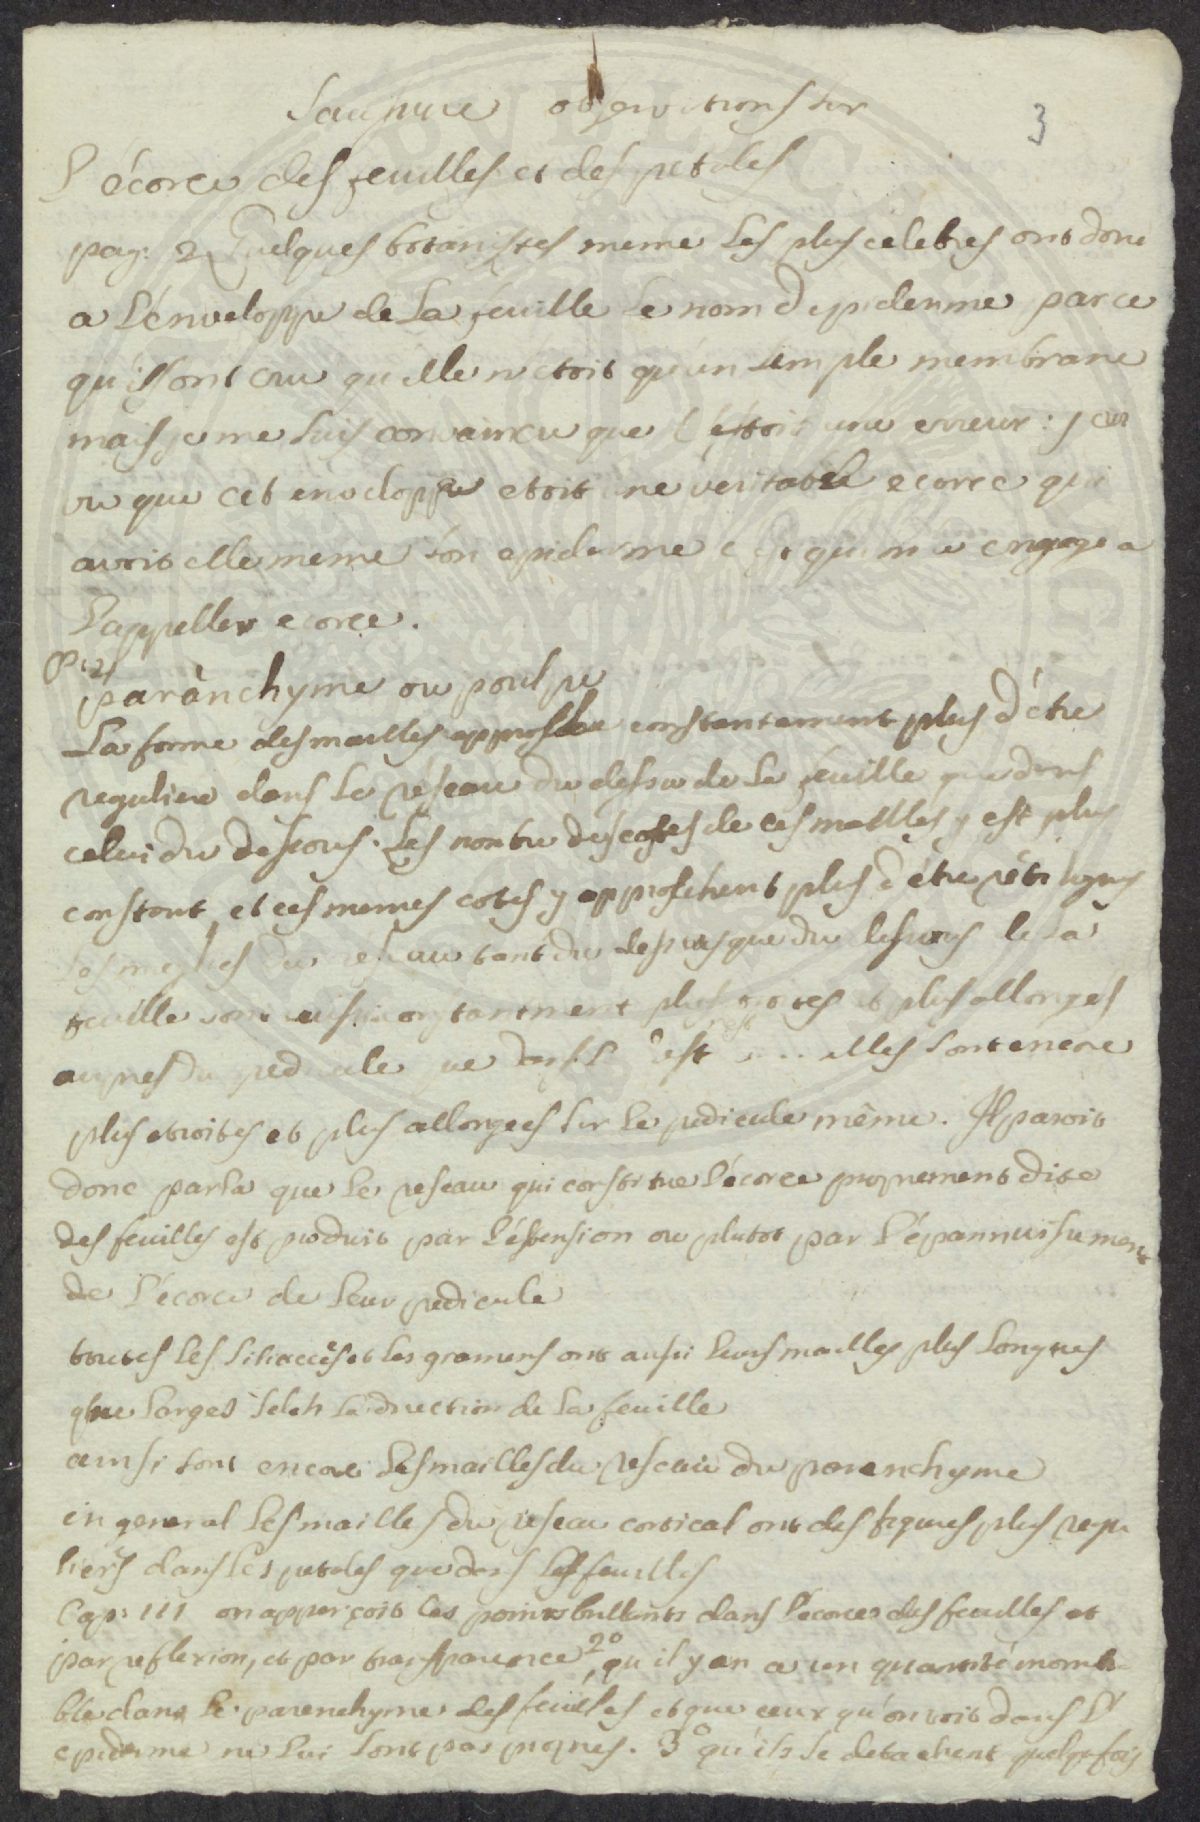 Saussure observations sur
3
l'écorce des feuilles et des petales
pag: 2 Quelques botanistes meme les plus celebres ont donc
a l'énveloppe de la feuille le nom d epiderme parce
qu'ils ont cru qu elle n etoit qu'un simple membrane
mais je me suis convaincu que c'éttoit une erreur: j ai
vu que cet enveloppe etoit une veritable ecorce qui
avoit elle meme son epiderme c est qui m'a engagé a
l'appeller ecorce.
P. 21
parànchyme ou poulpe
La forme des mailles approche constantement plus d'étre
reguliere dans le réseau du dessu de la feuille que dans
celui du dessous. Les nombre des costes de ces mailles y est plus
constant et ces memes cotes y approchent plus d'étre rétilignes
Les mailles du reseau tant du dessus que du dessous de la
feuille sont aussi constantment plus etroites et plus allongés
aupres du pedicule que dans l rest ... elles sont encore
plus etroites et plus allongees sur le pedicule même. Il paroit
donc parla que le reseau qui constitue l'écorce proprement dite
des feuilles est produit par l'éxtension ou plutot par l'épannuissement
de l'écorce de leur pedicule
toutes les liliacées et les gramens ont aussi leurs mailles plus longues
que larges seloh la direction de la feuille
ainsi sont encore les mailles du reseau du parenchyme
en general les mailles du reseau cortical ont des figures plus regu
liers dans les petales que dans les feuilles
Cap: III on apperçoit les points brillants dans l'écorces des feuilles et
par reflexion, et par transparence, 2º qu il y en a un quantité inomb-
ble dans le parenchyme des feuilles et que ceux qu'on voit dans l'
epiderme ne lui sont pas propres. 3º qu'ils se detachent quelquefois